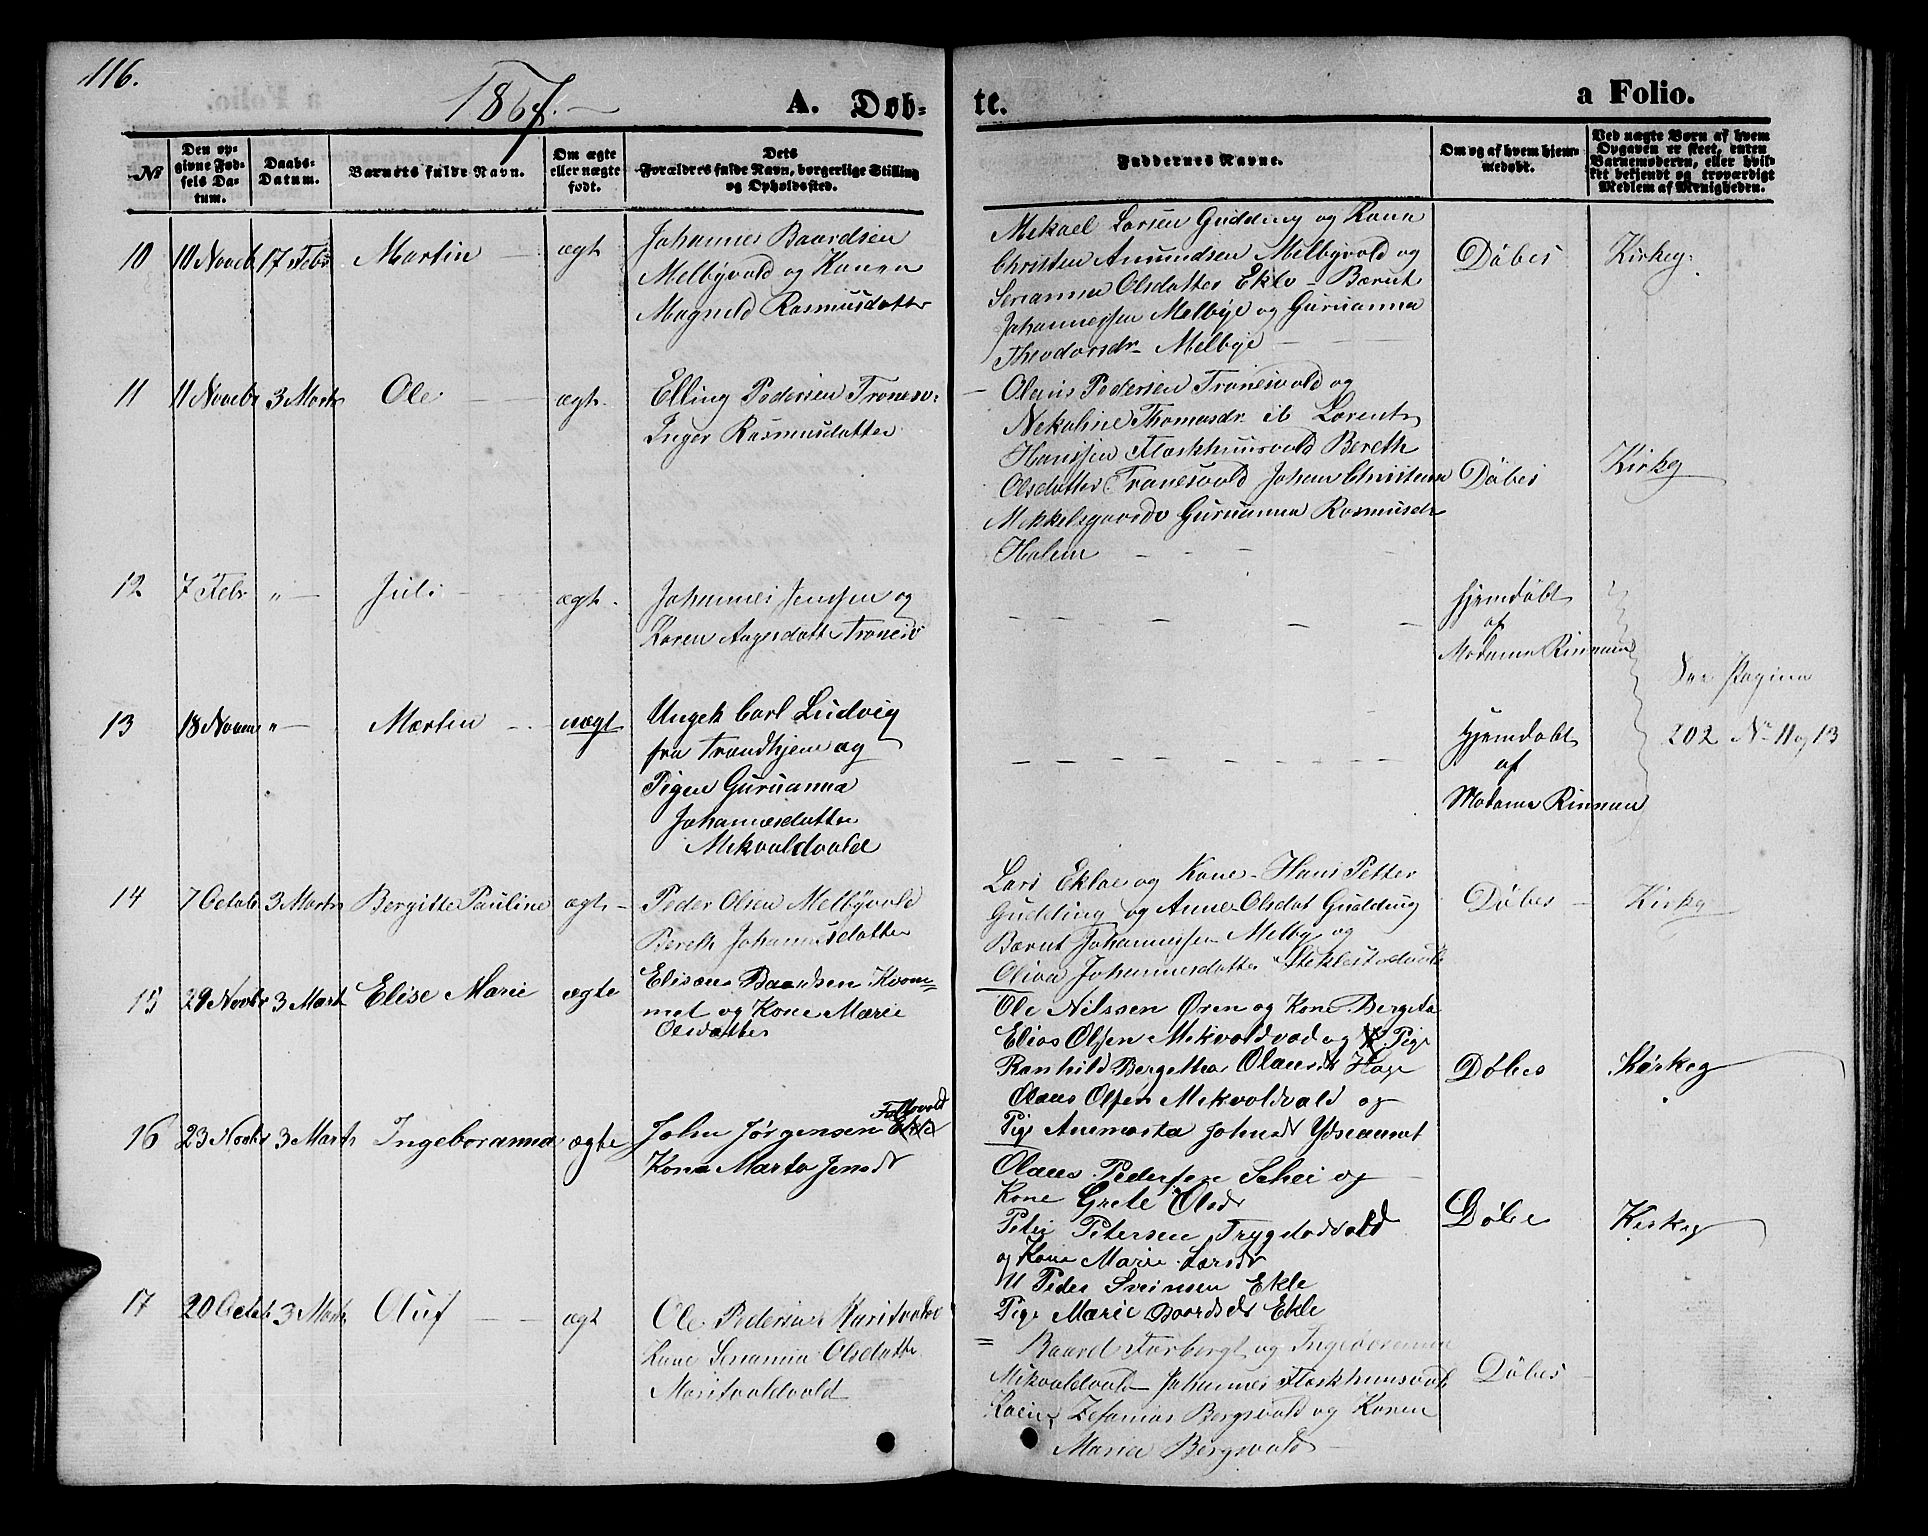 116.
1867.
A. Døb-
te.
a Folio.
№
Den op-
givne Fød-
sels Da-
tum.
Daabs-
Datum.
Barnets fulde Navn.
Om ægte
eller uægte
født.
Dets
Forældres fulde Navn, borgerlige Stilling
og Opholdssted.
Faddernes Navne.
Om og af hvem hjem-
medøbt.
Ved uægte Børn af hvem
Opgaven er skeet, enten
Barnemoderen, eller hvil-
ket bekjendt og troværdigt
Medlem af Menigheden.
10
10 Noveb
17 Febr
Martin
ægt
Johannes Baardsen
Melbyvold og Konen
Magnild Rasmusdatter
Mekael Larsen Gudding og Kone
Christen Amundsen Melbyvold og
Serianna Olsdatter Eklo - Bærnt
Johannessen Melbye og Guruanna
Theodorsdr Melbye
Døbes
Kirkeg.
11
11 Novebr
3 Marts
Ole
ægt.
Elling Pedersen Tronesv.
Inger Rasmusdatter
Olaus Pedersen Tronesvold og
Nekoline Thomasdr. ib Lorents
Hanssen Floskhuusvold Bereth
Olsdatter Tronesvold Johan Christian
Mekkelsgaardv Guruanna Rasmusdr
Holem
Døbes
Kirkeg
12
7 Febr
" —
Juli
ægt.
Johannes Jenssen og
Karen Aagesdatter Tronesv
Hjemdøbt
af
Madame Rinnan
See Pagina
202 No 11 og 13
13
18 Novem
" —
Martin
uægt
Ungek Carl Ludvig
fra Trondhjem og
Pigen Guruanna
Johannesdatter
Mikvoldvald
Hjemdøbt
af
Madame Rinnan
14
7 Octob
3 Marts
Bergitte Pauline
ægt
Peder Olsen Melbyvold
Bereth Johannesdatter
Lars Ekloe og Kone - Hans Petter
Gudding og Anne Olsdat Gudding
Bærnt Johannessen Melby og
Oliva Johannesdatter Stiklestadvald
Døbes
Kirkg
15
29 Novbr
3 Mart
Elise Marie
ægte
Elisæus Baardsen Kvom-
met og Kone Marie
Olsdatter
Ole Nilssen Øren og Kone Bergeta
Elias Olsen Mikvoldvad og Pige
Ranhild Bergettha Olausdt Hage
Olaus Olsen Mikvoldvald og
Pige Anemarta Johnsdt Ydseaunet
Døbes
Kirkeg
16
23 Novbr
3 Marts
Ingeboranna
ægte
John Jørgensen Eklo
Falkvold
Kone Marta Jensdt
Olaus Pedersen Schei og
Kone Grete Olsdt
Peter Petersen Trygstadvald
og Kone Marie Larsdt
U Peder Sveinsen Ekle
Pige Marie Baardsdt Ekle
Døbe
Kirkeg
17
20 Octob
3 Marts
Oluf
ægt
Ole Pedersen Maritvoldv
Kone Serianna Olsdatter
Maritvoldvald
Baard Forbergt og Ingeboranna
Mikvoldvald Johannes Floskhuusvold
Zefanias Bergsvald og Konen
Maria Bergsvald
Døbes